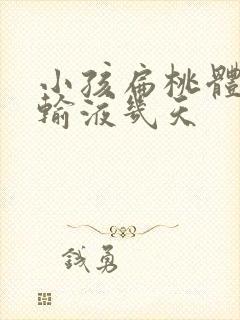 小孩扁桃體
輸液幾天
錢勇